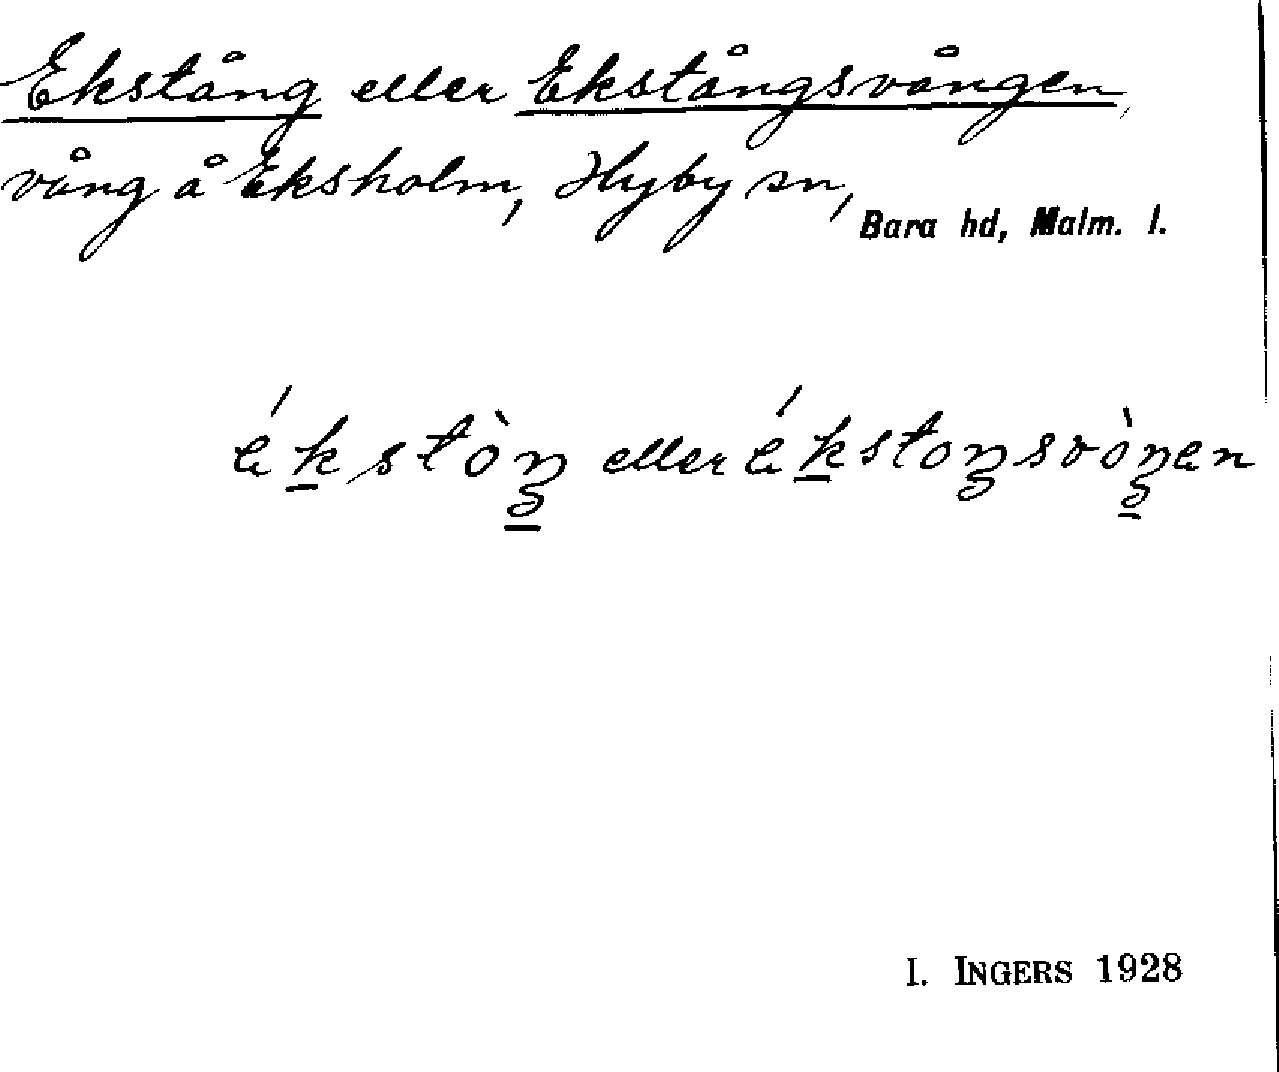 Ekstång eller Ekstångsvången,
vång å Eksholm, Hyby sn, Bara hd, Malm. l.
ékstòŋ eller ékstoŋsvòŋen
I. INGERS 1928